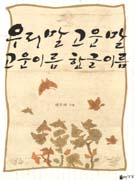 우리말 고운말
고운이름 한글이름